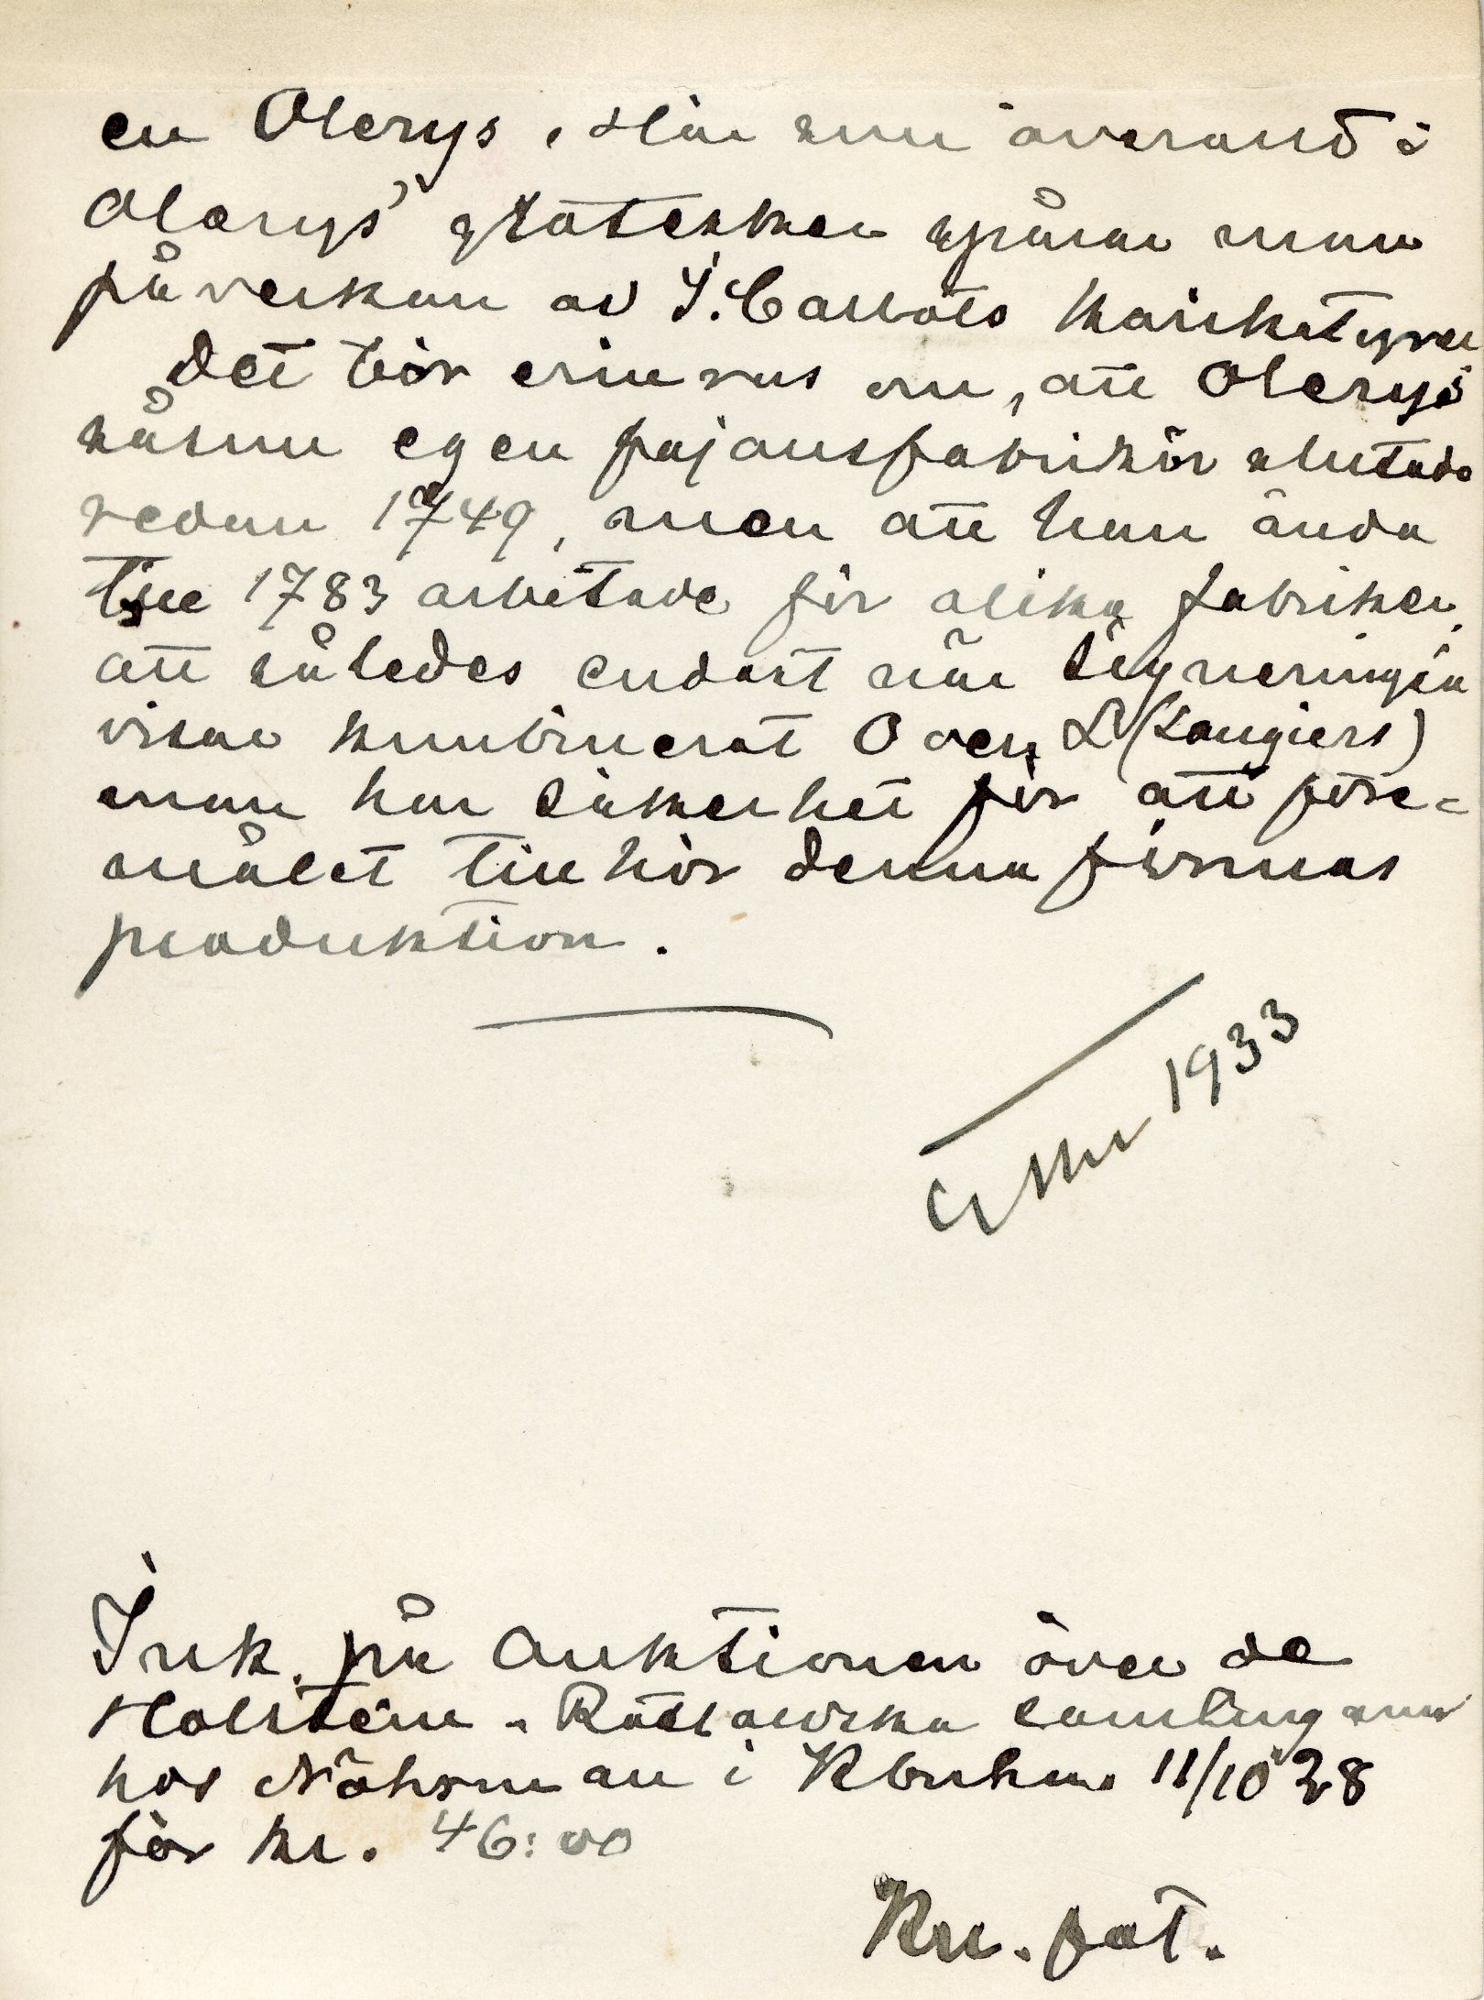 en Olerys. Här som överallt i
Olerys' grotesker spårar man
påverkan av J. Callots karikatyrer
Det bör erinras om, att Olerys
såsom egen fajansfabrikör slutade
redan 1749, men att han ända
till 1783 arbetade för olika fabriker,
att således endast när signeringen
visar kombinerat O och L (Laugiers)
man har säkerhet för att före-
målet tillhör denna firmas
produktion.
1933
Ink. på auktionen över de
Holstein - Ratlouska samlingarna
hos Nährman i Kbnhn. 11/10 28
för kr. 46:00
Kn. fot.